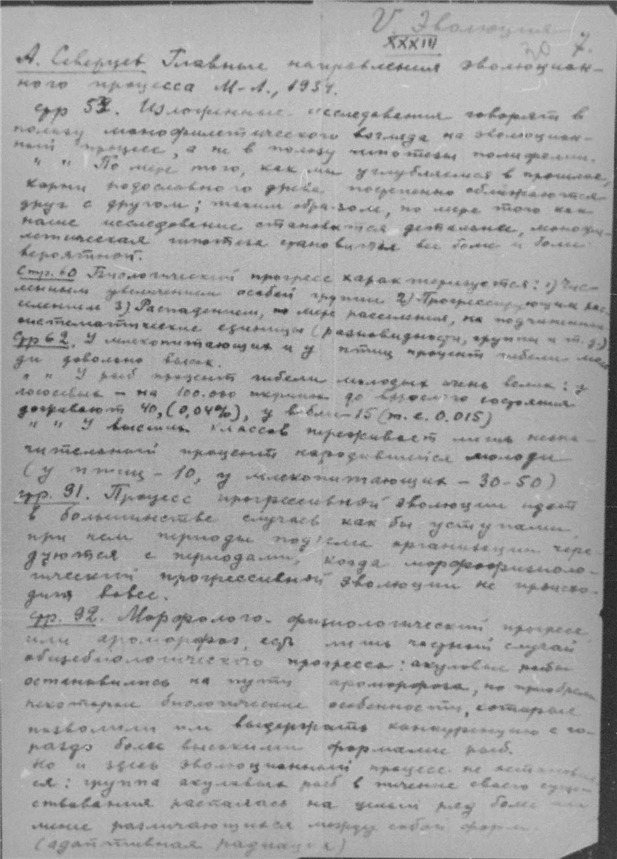 V. Эволюция
XXXIII
7.
А. Северцев Главные направления эволюцион-
ного процесса М-Л., 1934.
стр 53. Изложенные исследования говорят в
пользу монофилетического взгляда на эволюцион-
ный процесс, а не в пользу гипотезы полифилии.
" " По мере того, как мы углубляемся в прошлое,
корни родословного древа постепенно сближаются
друг с другом; таким образом, по мере того как
наше исследование становится детальнее, монофи-
летическая гипотеза становится все более и более
вероятной.
Стр. 60 Биологический прогресс характеризуется: 1) Чис-
ленным увеличением особей группы 2) Прогрессирующим рас-
селением 3) Распадением, по мере расселения, на подчиненные
систематические единицы (разновидности, группы и т.д.)
Стр 62. У млекопитающих и у птиц процент гибели моло-
ди довольно высок.
" " У рыб процент гибели молодых очень велик: у
лососевых – на 100.000 икринок до взрослого состояния
доживают 40, (0,04%), у – 15 (т.е. 0.015)
" " У высших классов переживает лишь незна-
чительный процент народившейся молоди
(у птиц – 10, у млекопитающих – 30-50)
стр. 91. Процесс прогрессивной эволюции идет
в большинстве случаев как бы уступами
при чем периоды подъема организации чере-
дуются с периодами, когда морфофизиоло-
гической прогрессивной эволюции не происхо-
дит вовсе.
стр. 92. Морфолого-физиологический прогресс
или ароморфоз, есть лишь частный случай
общебиологического прогресса: акуловые рыбы
остановились на пути ароморфоза, но приобрели
некоторые биологические особенности, которые
позволили им выдержать конкуренцию с го-
раздо более высокими формами рыб.
Но и здесь эволюционный процесс не останови-
ся: группа акуловых рыб в течение своего суще-
ствования распалась на целый ряд более или
менее различающихся между собой форм.
(адаптивная радиация)